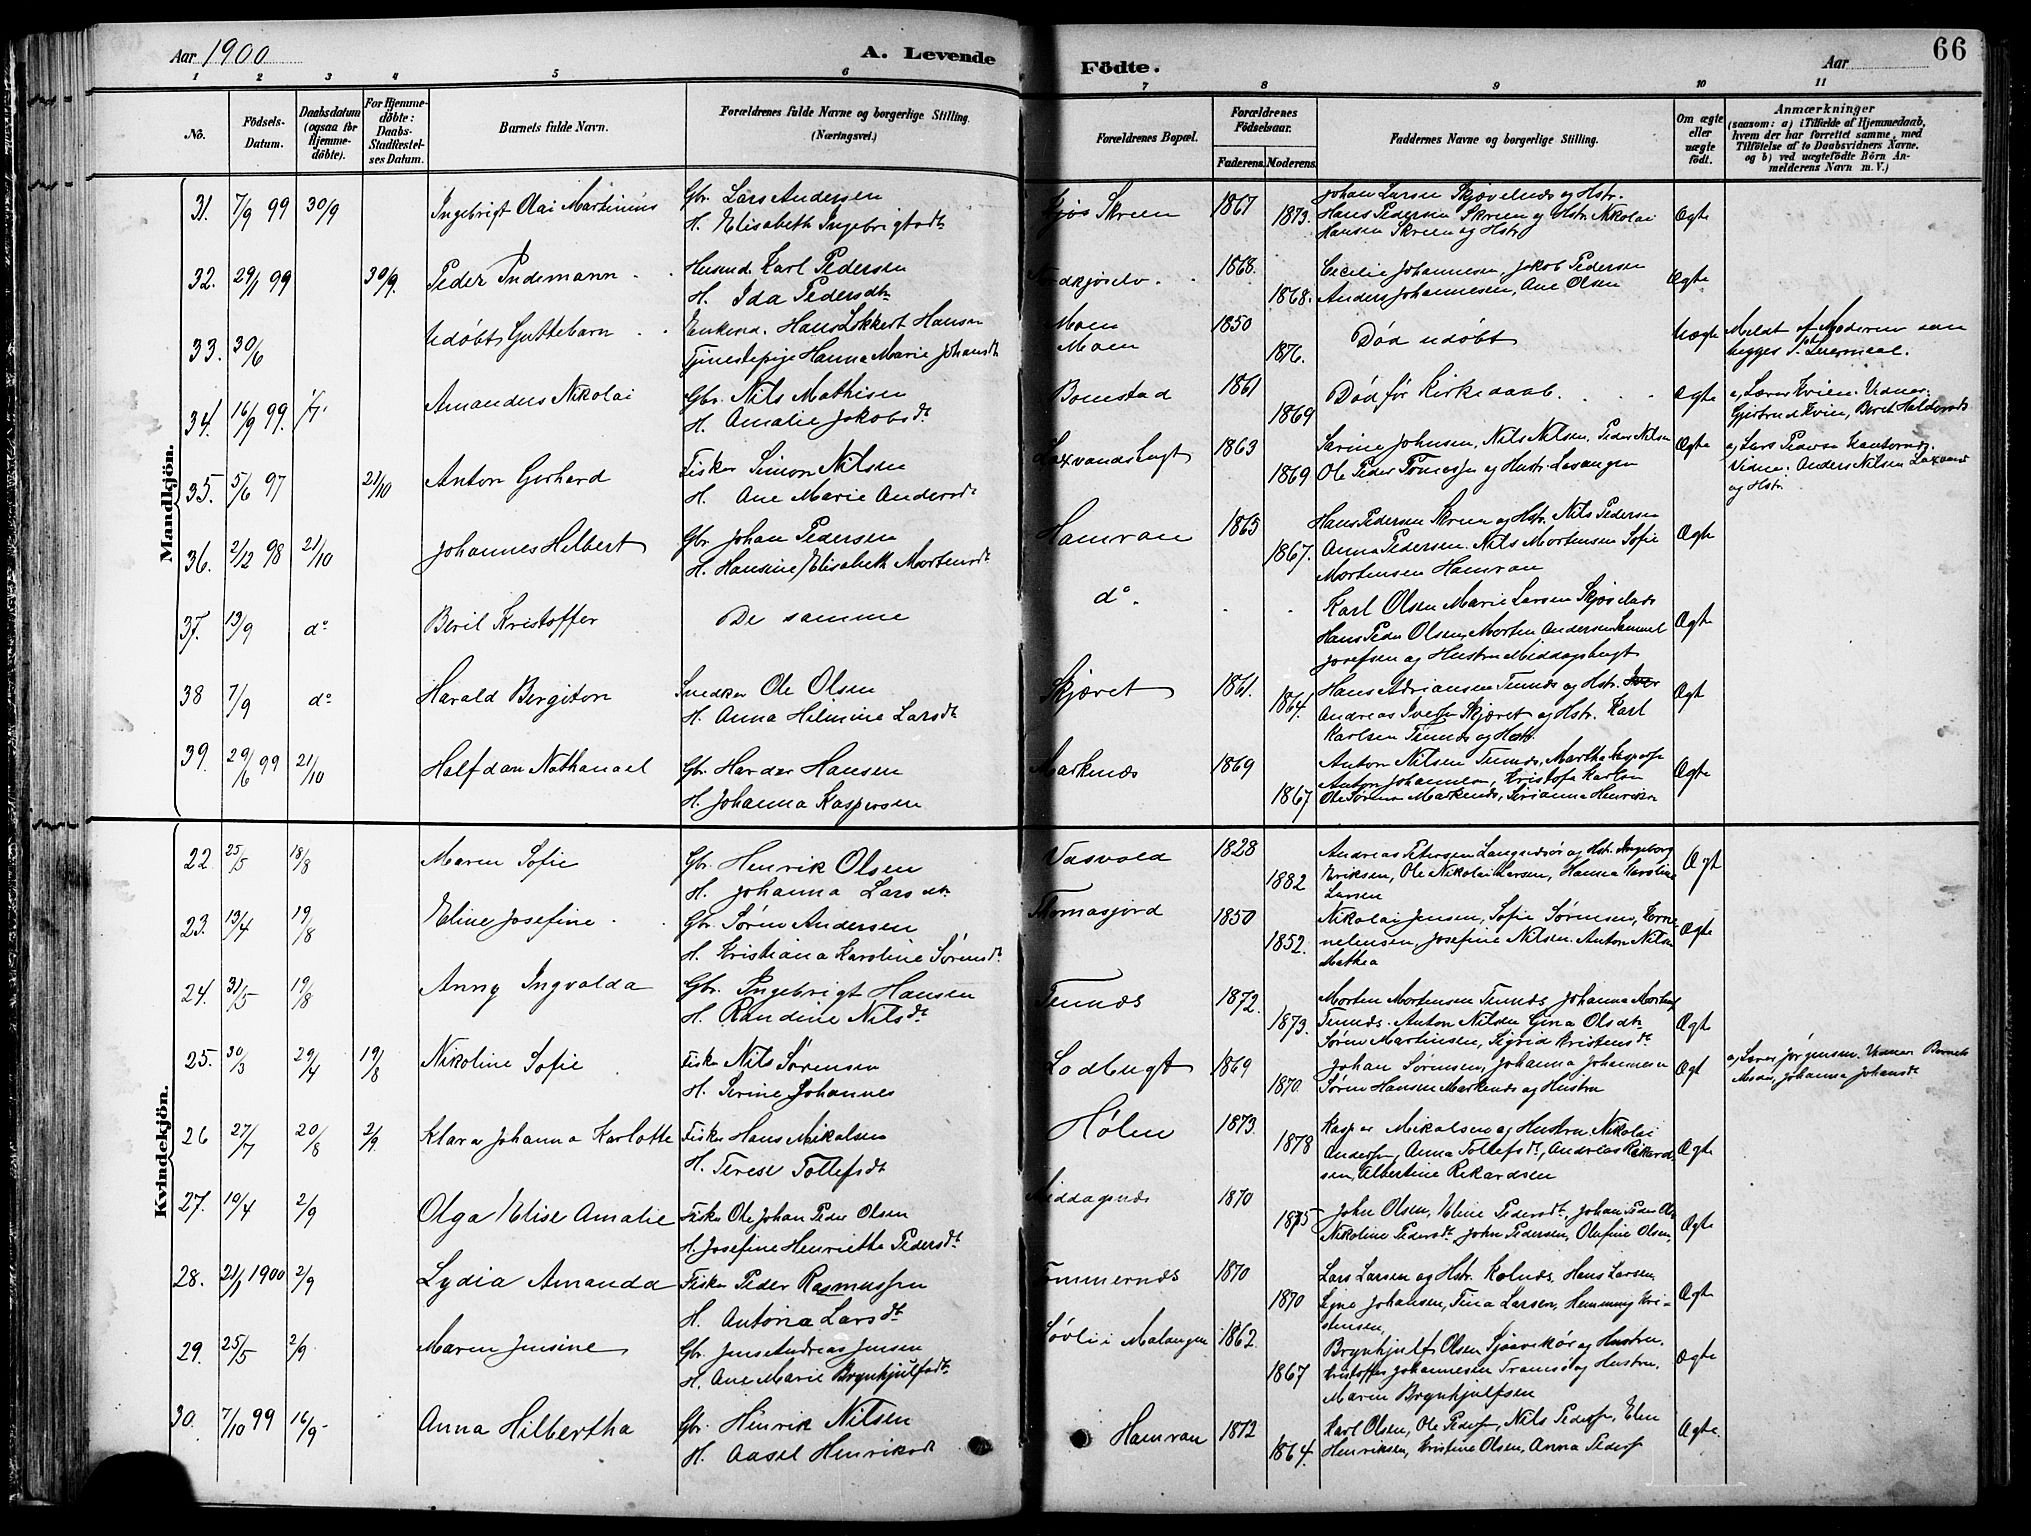 Aar 1900
A. Levende Födte.
Aar
66
1 2 3 4 5 6 7 8 9 10 11
No.
Födsels-Datum.
Daabsdatum (ogsaa for Hjemmedöbte).
For Hjemmedöbte: Daabs-Stadfæstelses Datum.
Barnets fulde Navn.
Forældrenes fulde Navne og borgerlige Stilling.
(Næringsvei.)
Forældrenes Bopæl.
Forældrenes Födselsaar.
Faderens. Moderens.
Faddernes Navne og borgerlige Stilling.
Om ægte eller uægte födt.
Anmærkninger
(saasom: a) i Tilfælde af Hjemmedaab,
hvem der har forrettet samme, med
Tilföielse af to Daabsvidners Navne.
og b) ved uægtefödte Börn Anmelderens Navn m. V.)
Mandkjön.
31. 7/9 99 30/9 Ingebrigt Olai Martinius Gbr. Lars Andersen Skreen 1867 Johan Larsen og Hstr.
H. Elisabeth Ingebrigtsdt. 1873. Hans Pedersen Skreen og Hstr. Nikolai Ægte
Hansen Skreen og Hstr.
32. 29/1 99 30/9. Peder Indemann Husmd. Karl Pedersen 1868. Cecilie Johannesen, Jakob Pedersen
H. Ida Pedersdt. 1868. Anders Johannesen, Ane Olsen Ægte
33. 30/6 Udøbt Guttebarn Enkemd. Hans Lokkert Hansen Moen 1850 Død udøbt Uægte Meldt af Moderen
Tjenestepige Hanna Marie Johansdt. Moen 1876.
34. 16/9 99. Amandus Nikolai Gbr. Nils Mathisen Bomstad 1861 Død før Kirkedaab. Ægte
H. Amalie Jakobsdt. 1869
35. 5/6 97 21/10 Anton Gerhard Fisker Simon Nilsen Laxvandsbugt 1863 Sarine Johnsen, Nils Nilsen, Peder Nilsen Ægte
H. Ane Marie Andersdt. 1869 Ole Peder Tomassen og Hustr. Lavangen Vidner: Anders Nilsen Laxvand
og Hstr.
36. 2/12 98 21/10 Johannes Hilbert Gbr. Johan Pedersen Hamran 1865 Hans Pedersen Skreen og Hstr. Nils Pedersen
H. Hansine Elisabeth Mortensdt. 1867. Anna Pedersen. Nils Mortensen Sofie Ægte
Mortensen Hamran
37. 13/9 do Beril Kristoffer De samme do. Karl Olsen Marie Larsen
Hans Peder Olsen, Morten Andersen Samuel Ægte
Josefsen og Hustru Middagsbugt
38 7/9 do Harald Bergiton Snedker Ole Olsen Skjæret 1861. Hans Adriansen Tennes og Hstr.
H. Anna Hilmine Larsdt. 1864. Andreas Iversen Skjæret og Hstr. Karl Ægte
Karlsen Tennes og Hstr.
39. 29/6 99 21/10 Halfdan Nathanael Gbr. Harder Hansen Markenæs 1869 Anton Nilsen Tennes, Martha
H. Johanna Kaspersen 1867 Anton Johannesen, Kristofa Karlsen Ægte
Ole Sørensen Markenæs,
Kvindekjön.
22. 25/5 18/8 Maren Sofie Gbr. Henrik Olsen Vasvold 1828 Andreas Petersen og Hstr. Ingeborg Ægt
H. Johanna Larsdt. 1882 Eriksen, Ole Nikolai Larsen, Hanna Karoline
Larsen
23. 13/4 19/8 Eline Josefine Gbr. Søren Andersen Thomasjord 1850 Nikolai Jensen, Sofie Sørensen, Ægte
H. Kristiana Karoline Sørensdt. 1852. Josefine Nilsen. Anton Nilsen
Mathea
24. 31/5 19/8 Anny Ingvalda Gbr. Ingebrigt Hansen Tennæs 1872. Morten Mortensen Tennæs, Johanna
H. Randine Nilsdt. 1873. Tennæs. Anton Nilsen Gina Olsdt. Ægte
Søren Martinsen, Sigrid Kristensdt.
25. 30/3 29/4 19/8 Nikoline Sofie Fisker Nils Sørensen Lodbugt 1869 Johan Sørensen, Johanna Johannesen Ægt a, Lærer Jørgensen. Vidner Barnets
H. Serine Johannes 1870 Søren Hansen Markenæs og Hustru Johanna Johansdt.
26 27/7 20/8 2/9. Klara Johanna Karlotte Fisker Hans Mikalsen Hølen 1873. Kasper Mikalsen og Hustru, Nikolai
H. Terese Tollefsdt. 1878 Andersen, Anna Tollefsdt, Andreas Rikardsen, Albertine Rikardsen Ægte
27. 19/4 2/9 Olga Elise Amalie Fisker Ole Johan Peder Olsen Middagsnæs 1870 John Olsen, Eline Pedersdt, Johan Peder
H. Josefine Henriette Pedersdt. 1875 Nikoline Pedersdt. John Pedersen, Olufine Olsen, Ægte
28. 21/1 1900 2/9 Lydia Amanda Fisker Peder Rasmussen Tømmernæs 1870 Lars Larsen og Hstr. Kolnæs, Hans Larsen,
H. Antoria Larsdt. 1870 Signe Johansen, Tina Larsen, Hemming Kri- Ægte
stensen,
29. 25/5 2/9 Maren Jensine Gbr. Jens Andreas Jensen i Malangen 1862. Brynhjulf Olsen og Hustru.
H. Ane Marie Brynhjulfsdt. 1867 Kristoffer Johannesen Tromsø og Hustru. Ægte
Maren Brynhjulfsen
30. 7/10 99 16/9 Anna Hilbertha Gbr. Henrik Nilsen Hamran 1872 Karl Olsen, Ole Pedersen, Nils Pedersen, Elen Ægte.
H. Aasel Henriksdt 1864. Henriksen, Kristine Olsen, Anna Pedersen